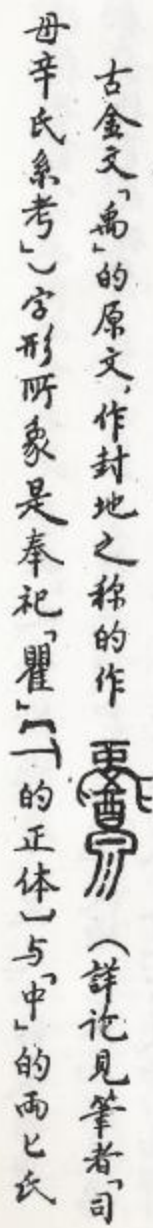 古金文「禹」的原文，作封地之称的作（詳论見筆者「司
母辛氏系考」）字形所象是奉祀「瞿」【一的正体】与「中」的两匕氏